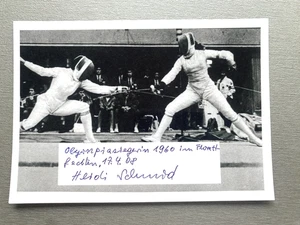 Olympiasiegerin 1960 im Florett-
fechten, 17.4.08
Heidi Schmid